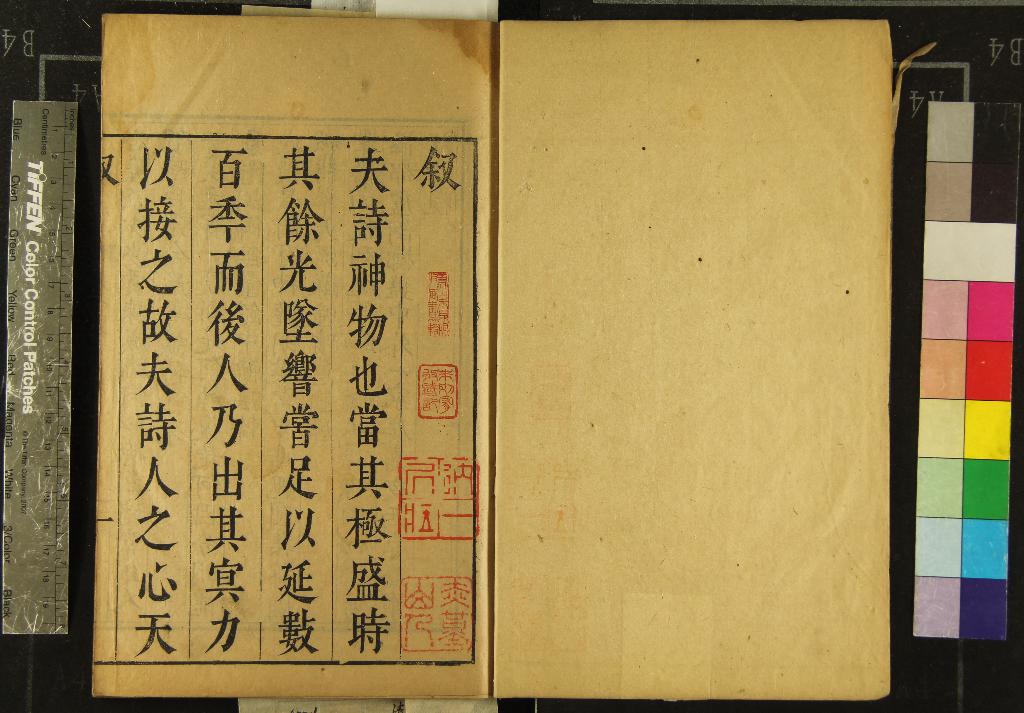 叙
夫詩神物也當其極盛時
其餘光墜響嘗足以延數
百秊而後人乃出其㝠力
以接之故夫詩人之心天
叙
一
TIFFEN Color Control Patches
Centimetres
Inches
Blue
Cyan
Green
Yellow
Red
Magenta
White
3/Color
Black
B4
A4
B4
A4